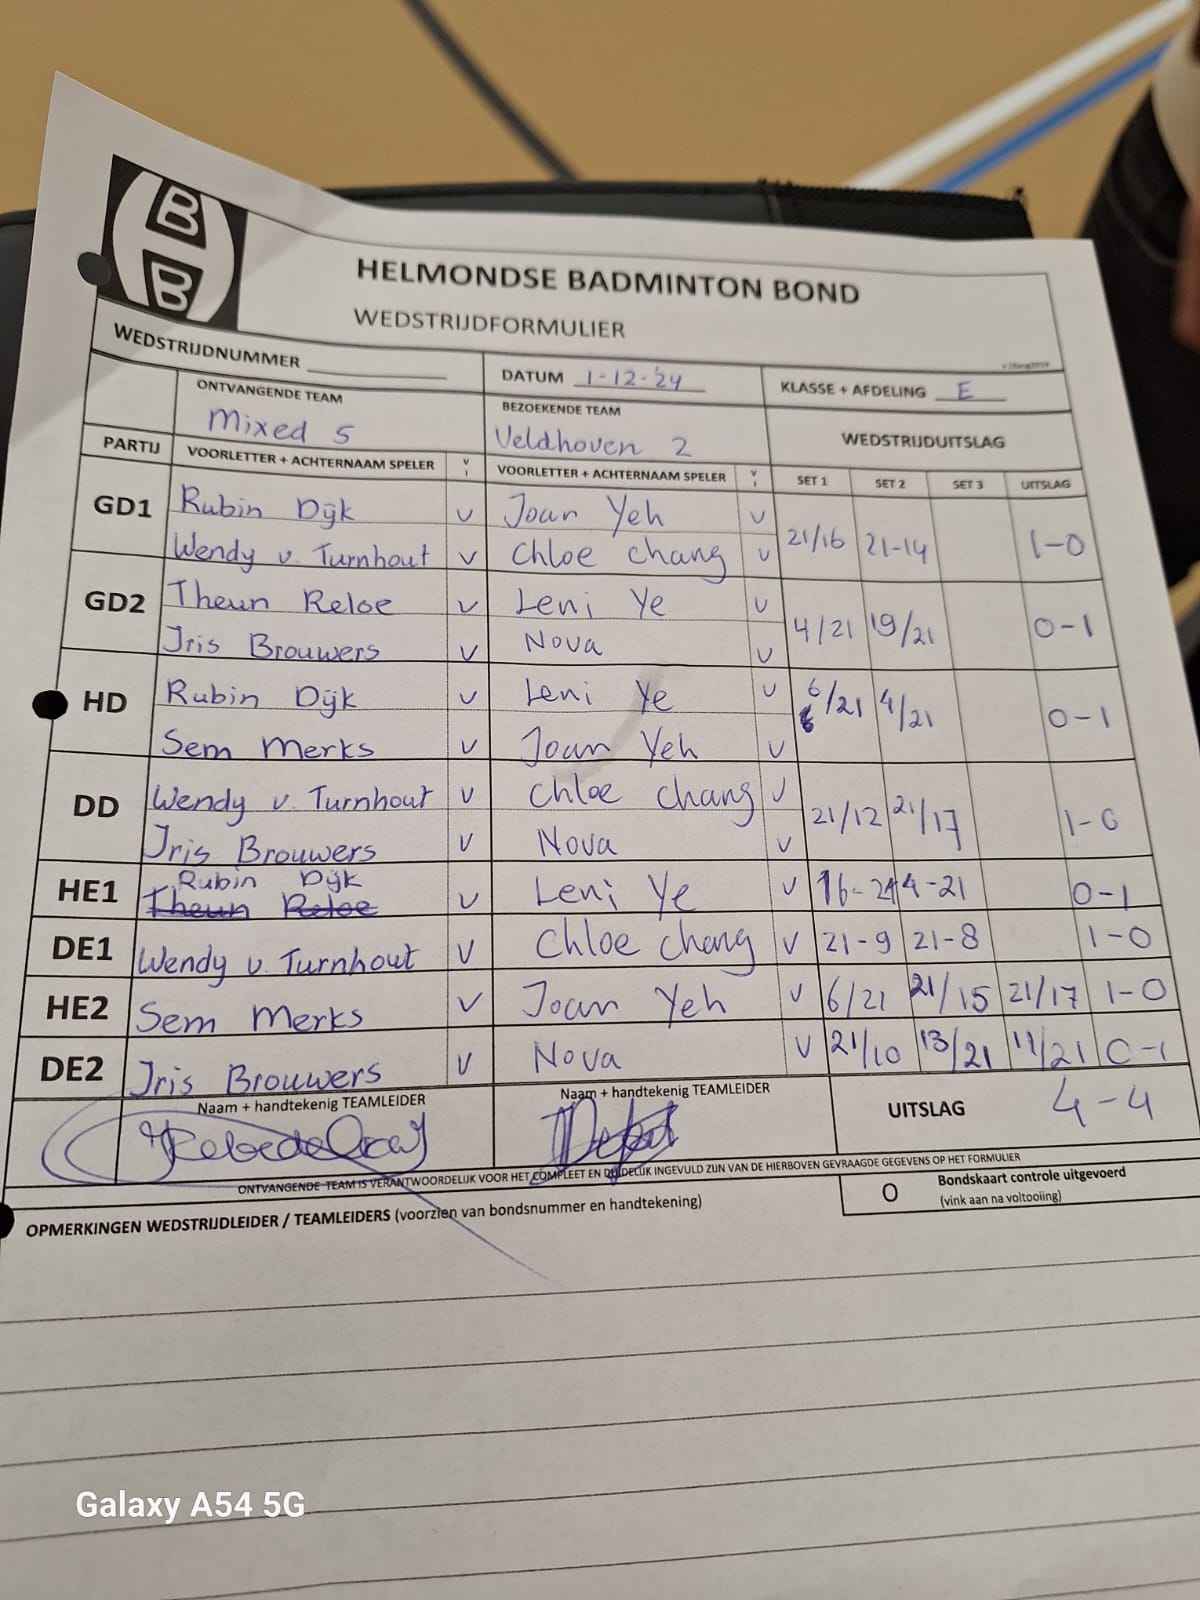 B
B
HELMONDSE BADMINTON BOND
WEDSTRIJDFORMULIER
WEDSTRIJDNUMMER
DATUM 1-12-'24
KLASSE + AFDELING E
ONTVANGENDE TEAM
Mixed 5
BEZOEKENDE TEAM
Veldhoven 2
WEDSTRIJDUITSLAG
PARTIJ VOORLETTER + ACHTERNAAM SPELER V I VOORLETTER + ACHTERNAAM SPELER V I SET 1 SET 2 SET 3 UITSLAG
GD1 Rubin Dijk v Joan Yeh v 21/16 21-14 1-0
Wendy v. Turnhout v Chloe chang v
GD2 Theun Reloe v Leni Ye v 4/21 19/21 0-1
Iris Brouwers v Nova v
HD Rubin Dijk v Leni Ye v 6/21 4/21 0-1
Sem Merks v Joan Yeh v
DD Wendy v. Turnhout v Chloe chang v 21/12 21/17 1-0
Iris Brouwers v Nova v
HE1 Rubin Dijk v Leni Ye v 16-21 4-21 0-1
Theun Reloe
DE1 Wendy v. Turnhout v Chloe chang v 21-9 21-8 1-0
HE2 Sem Merks v Joan Yeh v 6/21 21/15 21/17 1-0
DE2 Iris Brouwers v Nova v 21/10 13/21 11/21 0-1
Naam + handtekenig TEAMLEIDER
Naam + handtekenig TEAMLEIDER
UITSLAG 4-4
ONTVANGENDE TEAM IS VERANTWOORDELIJK VOOR HET COMPLEET EN DUIDELIJK INGEVULD ZIJN VAN DE HIERBOVEN GEVRAAGDE GEGEVENS OP HET FORMULIER
O Bondskaart controle uitgevoerd
(vink aan na voltooiing)
OPMERKINGEN WEDSTRIJDLEIDER / TEAMLEIDERS (voorzien van bondsnummer en handtekening)
Galaxy A54 5G